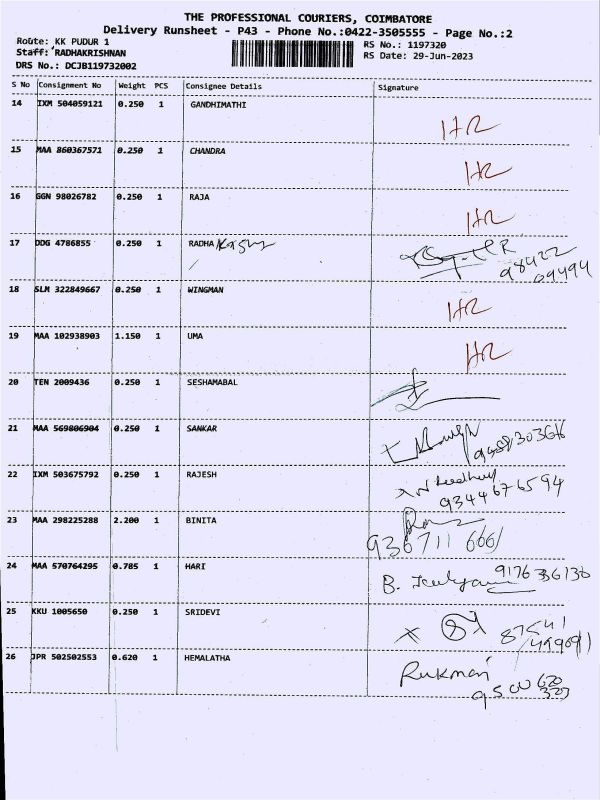 THE PROFESSIONAL COURIERS, COIMBATORE
Delivery Runsheet - P43 - Phone No.:0422-3505555 - Page No.:2
Route: KK PUDUR 1 RS No.: 1197320
Staff: RADHAKRISHNAN RS Date: 29-Jun-2023
DRS No.: DCJB119732002
S No Consignment No Weight PCS Consignee Details Signature
14 IXM 504059121 0.250 1 GANDHIMATHI
HR
15 MAA 860367571 0.250 1 CHANDRA
HR
16 GGN 98026782 0.250 1 RAJA
HR
17 DDG 4786855 0.250 1 RADHA
98422
09494
18 SLM 322849667 0.250 1 WINGMAN
HR
19 MAA 102938903 1.150 1 UMA
HR
20 TEN 2009436 0.250 1 SESHAMABAL
21 MAA 569806904 0.250 1 SANKAR
22 IXM 503675792 0.250 1 RAJESH
9344676594
23 MAA 298225288 2.200 1 BINITA
936 711 6661
24 MAA 570764295 0.785 1 HARI
9176336136
25 KKU 1005650 0.250 1 SRIDEVI
87541
26 JPR 502502553 0.620 1 HEMALATHA
Rukmani
9500 620
323